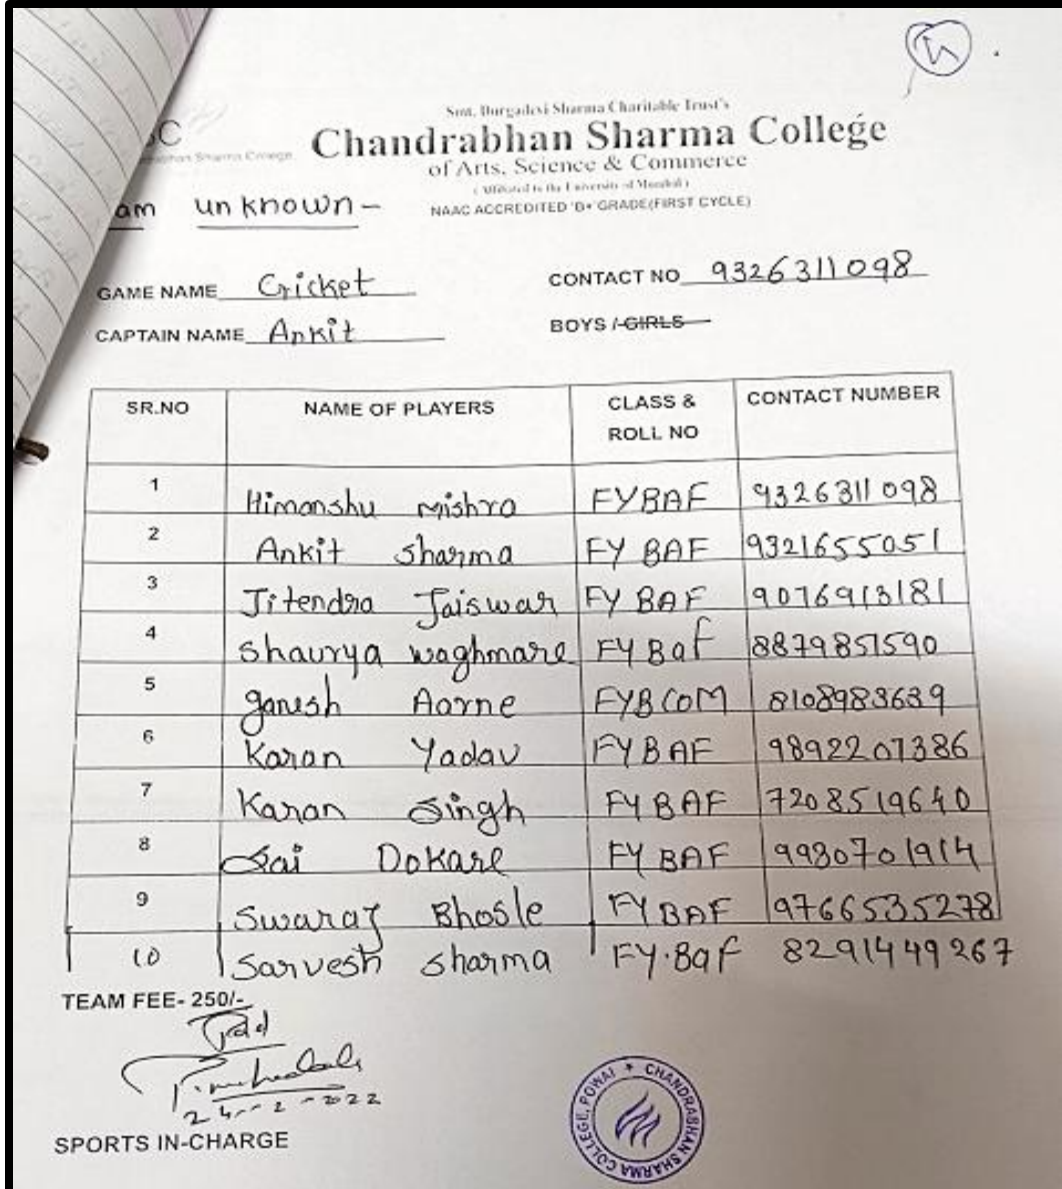 Smt. Durgadevi Sharma Charitable Trust's
Chandrabhan Sharma College
of Arts, Science & Commerce
(Affiliated to the University of Mumbai)
NAAC ACCREDITED 'B+' GRADE(FIRST CYCLE)
am unknown -
GAME NAME Cricket CONTACT NO 9326311098
CAPTAIN NAME Ankit BOYS / GIRLS
SR.NO NAME OF PLAYERS CLASS & ROLL NO CONTACT NUMBER
1 Himanshu mishra FYBAF 9326311098
2 Ankit sharma FY BAF 9321655051
3 Jitendra Jaiswar FY BAF 9076913181
4 shaurya waghmare FY Baf 8879851590
5 ganesh Aarne FYBCOM 8108983639
6 Karan Yadav FYBAF 9892207386
7 Karan Singh FYBAF 7208519640
8 Sai Dokare FY BAF 9930701914
9 Swaraj Bhosle FYBAF 9766535278
10 Sarvesh sharma FY.Baf 8291449267
TEAM FEE- 250/-
24-2-2022
SPORTS IN-CHARGE
CHANDRABHAN SHARMA COLLEGE, POWAI